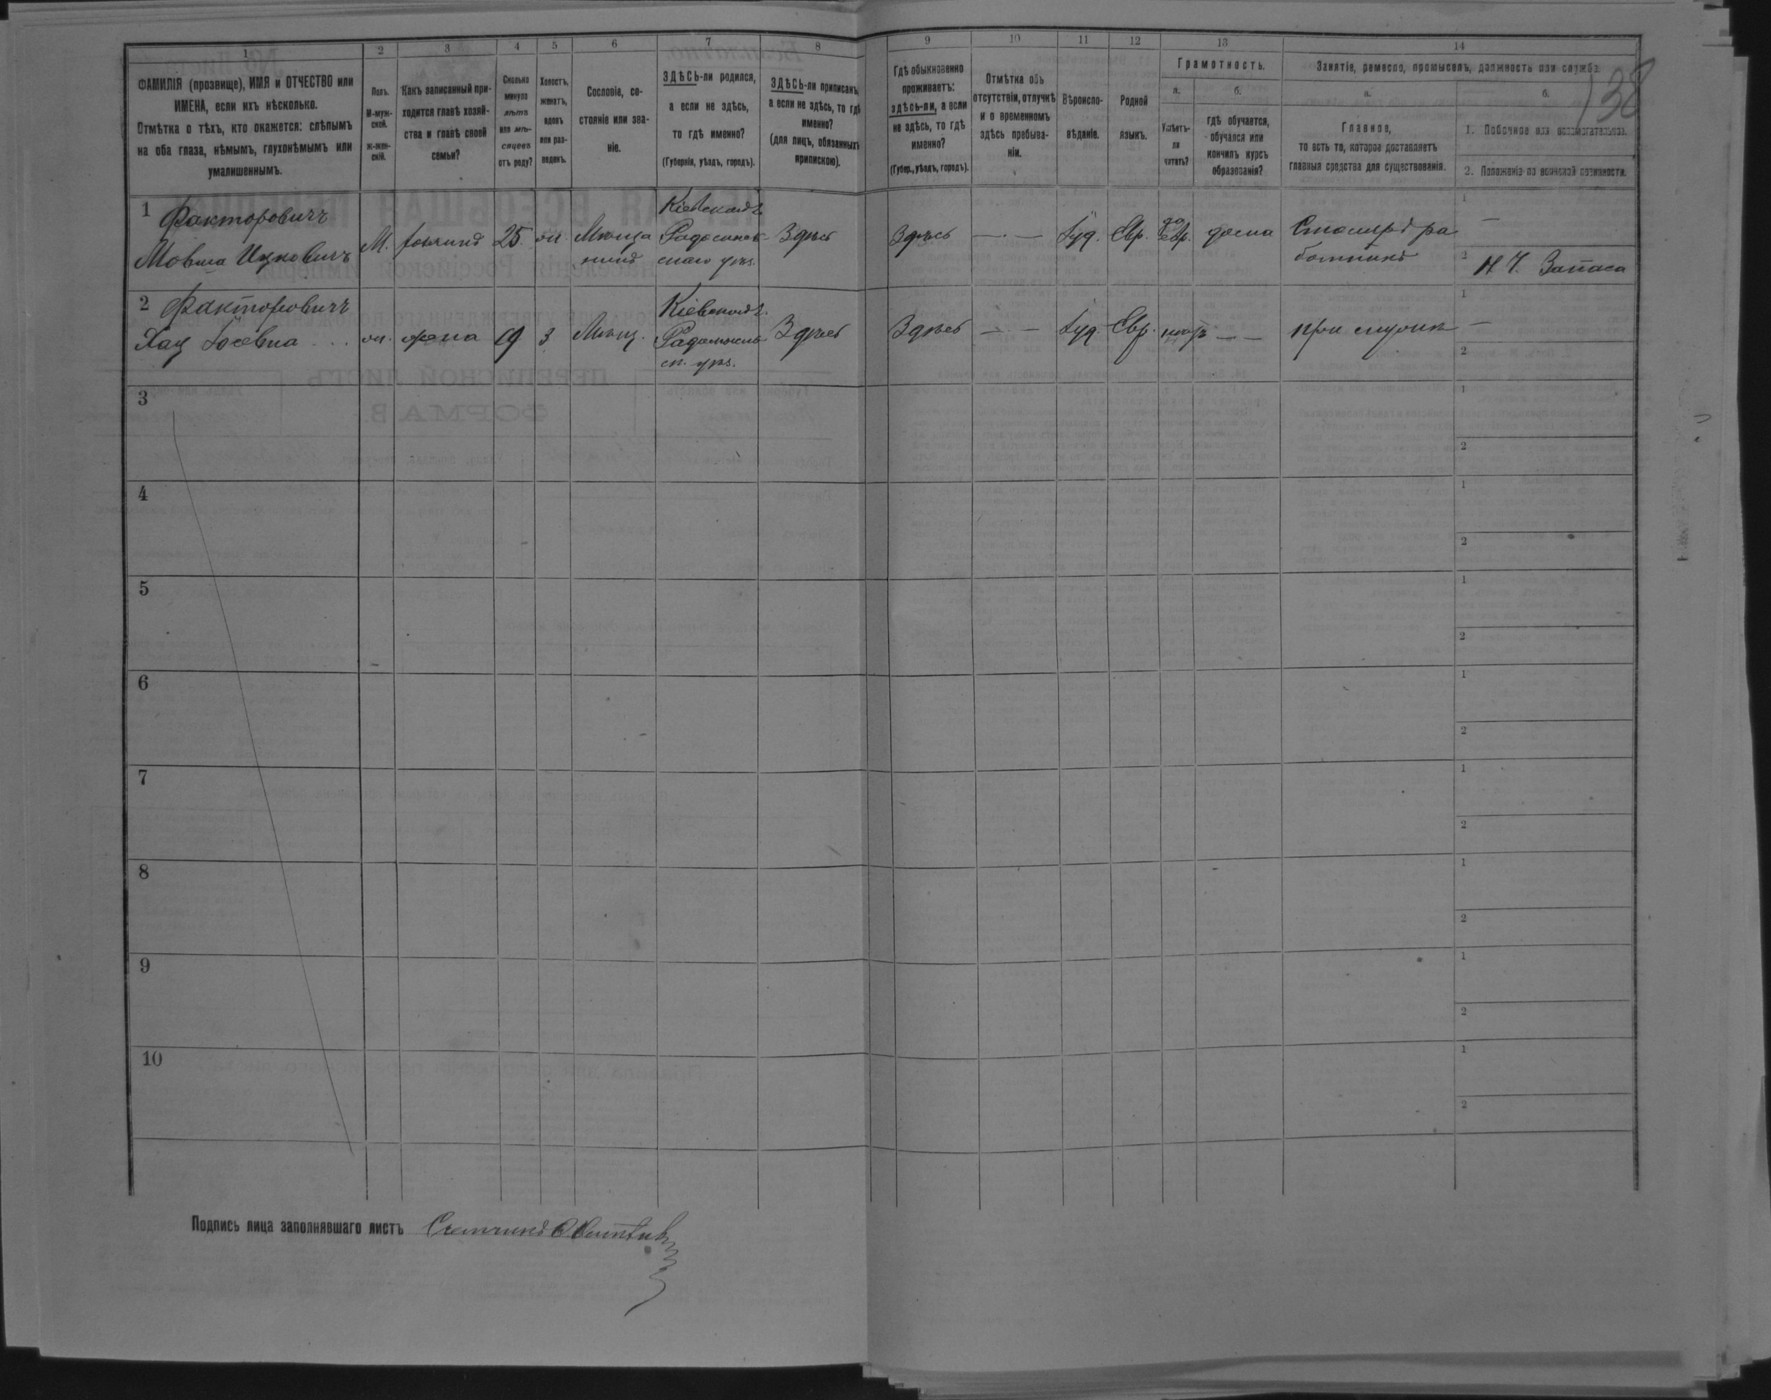 1 2 3 4 5 6 7 8 9 10 11 12 13 14
ФАМИЛІЯ (прозвище), ИМЯ и ОТЧЕСТВО или
ИМЕНА, если ихъ нѣсколько.
Отмѣтка о тѣхъ, кто окажется: слѣпымъ
на оба глаза, нѣмымъ, глухонѣмымъ или
умалишеннымъ.
Полъ.
М-муж-
ской.
ж-жен-
скій.
Какъ записанный при-
ходится главѣ хозяй-
ства и главѣ своей
семьи?
Сколько
минуло
лѣтъ
или мѣ-
сяцевъ
отъ роду?
Холостъ,
женатъ,
вдовъ
или раз-
веденъ.
Сословіе, со-
стояніе или зва-
ніе.
ЗДѢСЬ-ли родился,
а если не здѣсь,
то гдѣ именно?
(Губернія, уѣздъ, городъ).
ЗДѢСЬ-ли приписанъ,
а если не здѣсь, то гдѣ
именно?
(для лицъ, обязанныхъ
припискою).
Гдѣ обыкновенно
проживаетъ:
здѣсь-ли, а если
не здѣсь, то гдѣ
именно?
(Губер., уѣздъ, городъ).
Отмѣтка объ
отсутствіи, отлучкѣ
и о временномъ
здѣсь пребыва-
ніи.
Вѣроиспо-
вѣданіе.
Родной
языкъ.
Грамотность.
а.
Умѣетъ-
ли
читать?
б.
гдѣ обучается,
обучался или
кончилъ курсъ
образованія?
Занятіе, ремесло, промыселъ, должность или служба.
а.
Главное,
то есть то, которое доставляетъ
главныя средства для существованія.
б.
1. Побочное или вспомогательное.
2. Положеніе по воинской повинности.
138
1 Факторовичъ
Мовша Ицковичъ
М.
25
Мѣща
нинъ
Кіевской г.
Радомысль
скаго уѣз.
Здѣсь
Здѣсь
— —
Іуд.
Евр.
да
Евр.
дома
Столяръ ра
ботникъ
1 —
2 Н. Ч. Запаса
2 Факторовичъ
жена
19
з
Мѣщ.
Кіевской г.
Радомысль
ск. уѣз.
Здѣсь
Здѣсь
— —
Іуд.
Евр.
— —
при мужѣ
1 —
2
3 1 2
4 1 2
5 1 2
6 1 2
7 1 2
8 1 2
9 1 2
10 1 2
Подпись лица заполнявшаго листъ